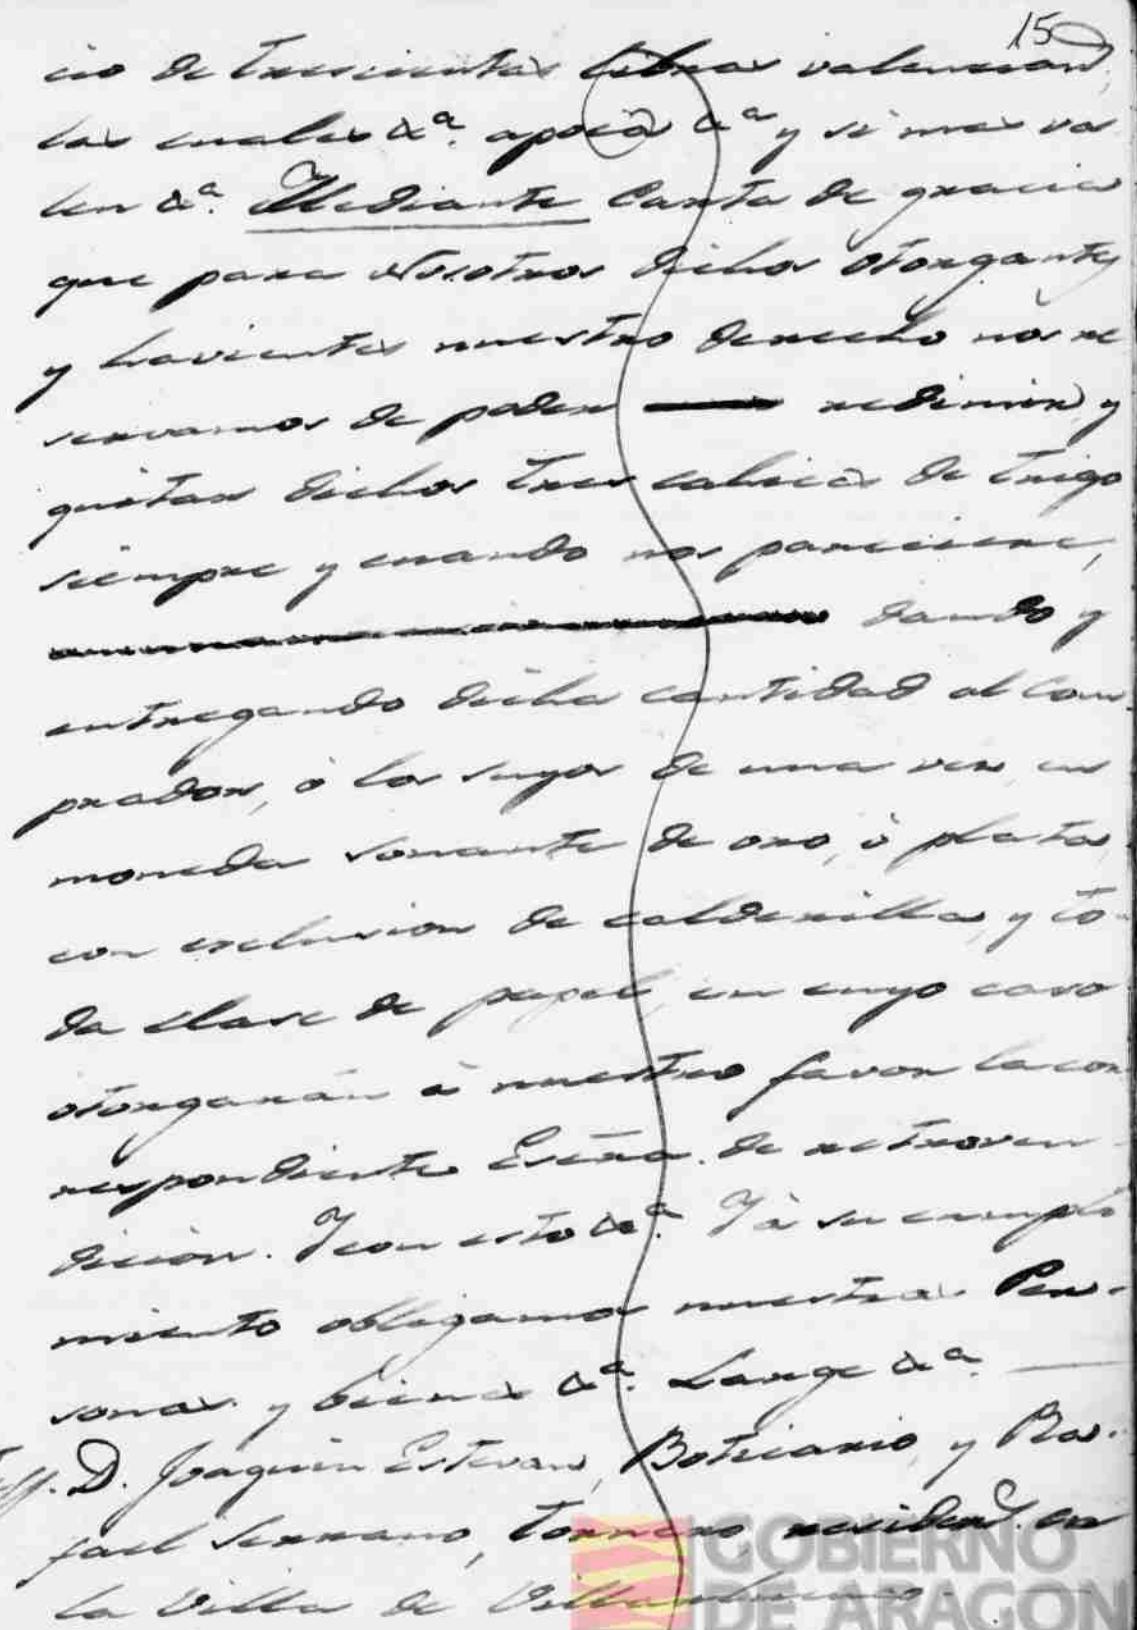 15
cio de trescientas libras valencian,
las cuales &ª. apoca &ª y si mas va
len &ª. Mediante Carta de gracia
que para Nosotros dichos otorgantes
y havientes nuestro derecho nos re
servamos de poder redimir, y
quitar dichos tres cahices de trigo
siempre y cuando nos pareciere,
dando y
entregando dicha cantidad al Com
prador, ó los suyos de una vez, en
moneda sonante de oro, ó plata,
con esclusion de calderilla, y to-
da clase de papel, en cuyo caso
otorgarán á nuestro favor la cor
respondiente Escrra. de retroven-
dicion. Y con esto &ª. Y á su cumpli
miento obligamos nuestras Per-
sonas y bienes &ª. Large &ª.
D. Joaquin Estevan, Boticario, y Ra-
fael Serrano, tornero, residentes en
la Villa de
GOBIERNO
DE ARAGON